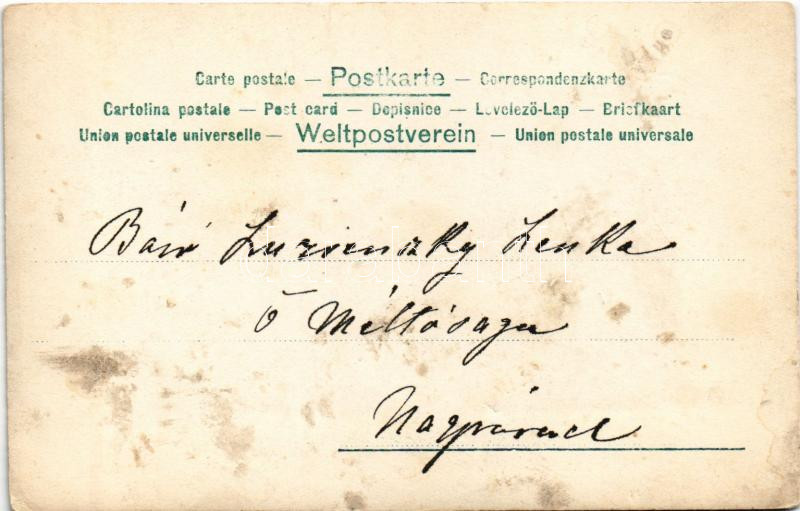 Carte postale — Postkarte — Correspondenzkarte
Cartolina postale — Post card — Dopisnice — Levelező-Lap — Briefkaart
Union postale universelle — Weltpostverein — Union postale universale
Báró Luzsenszky Lenka
ő Méltósága
Nagyvárad